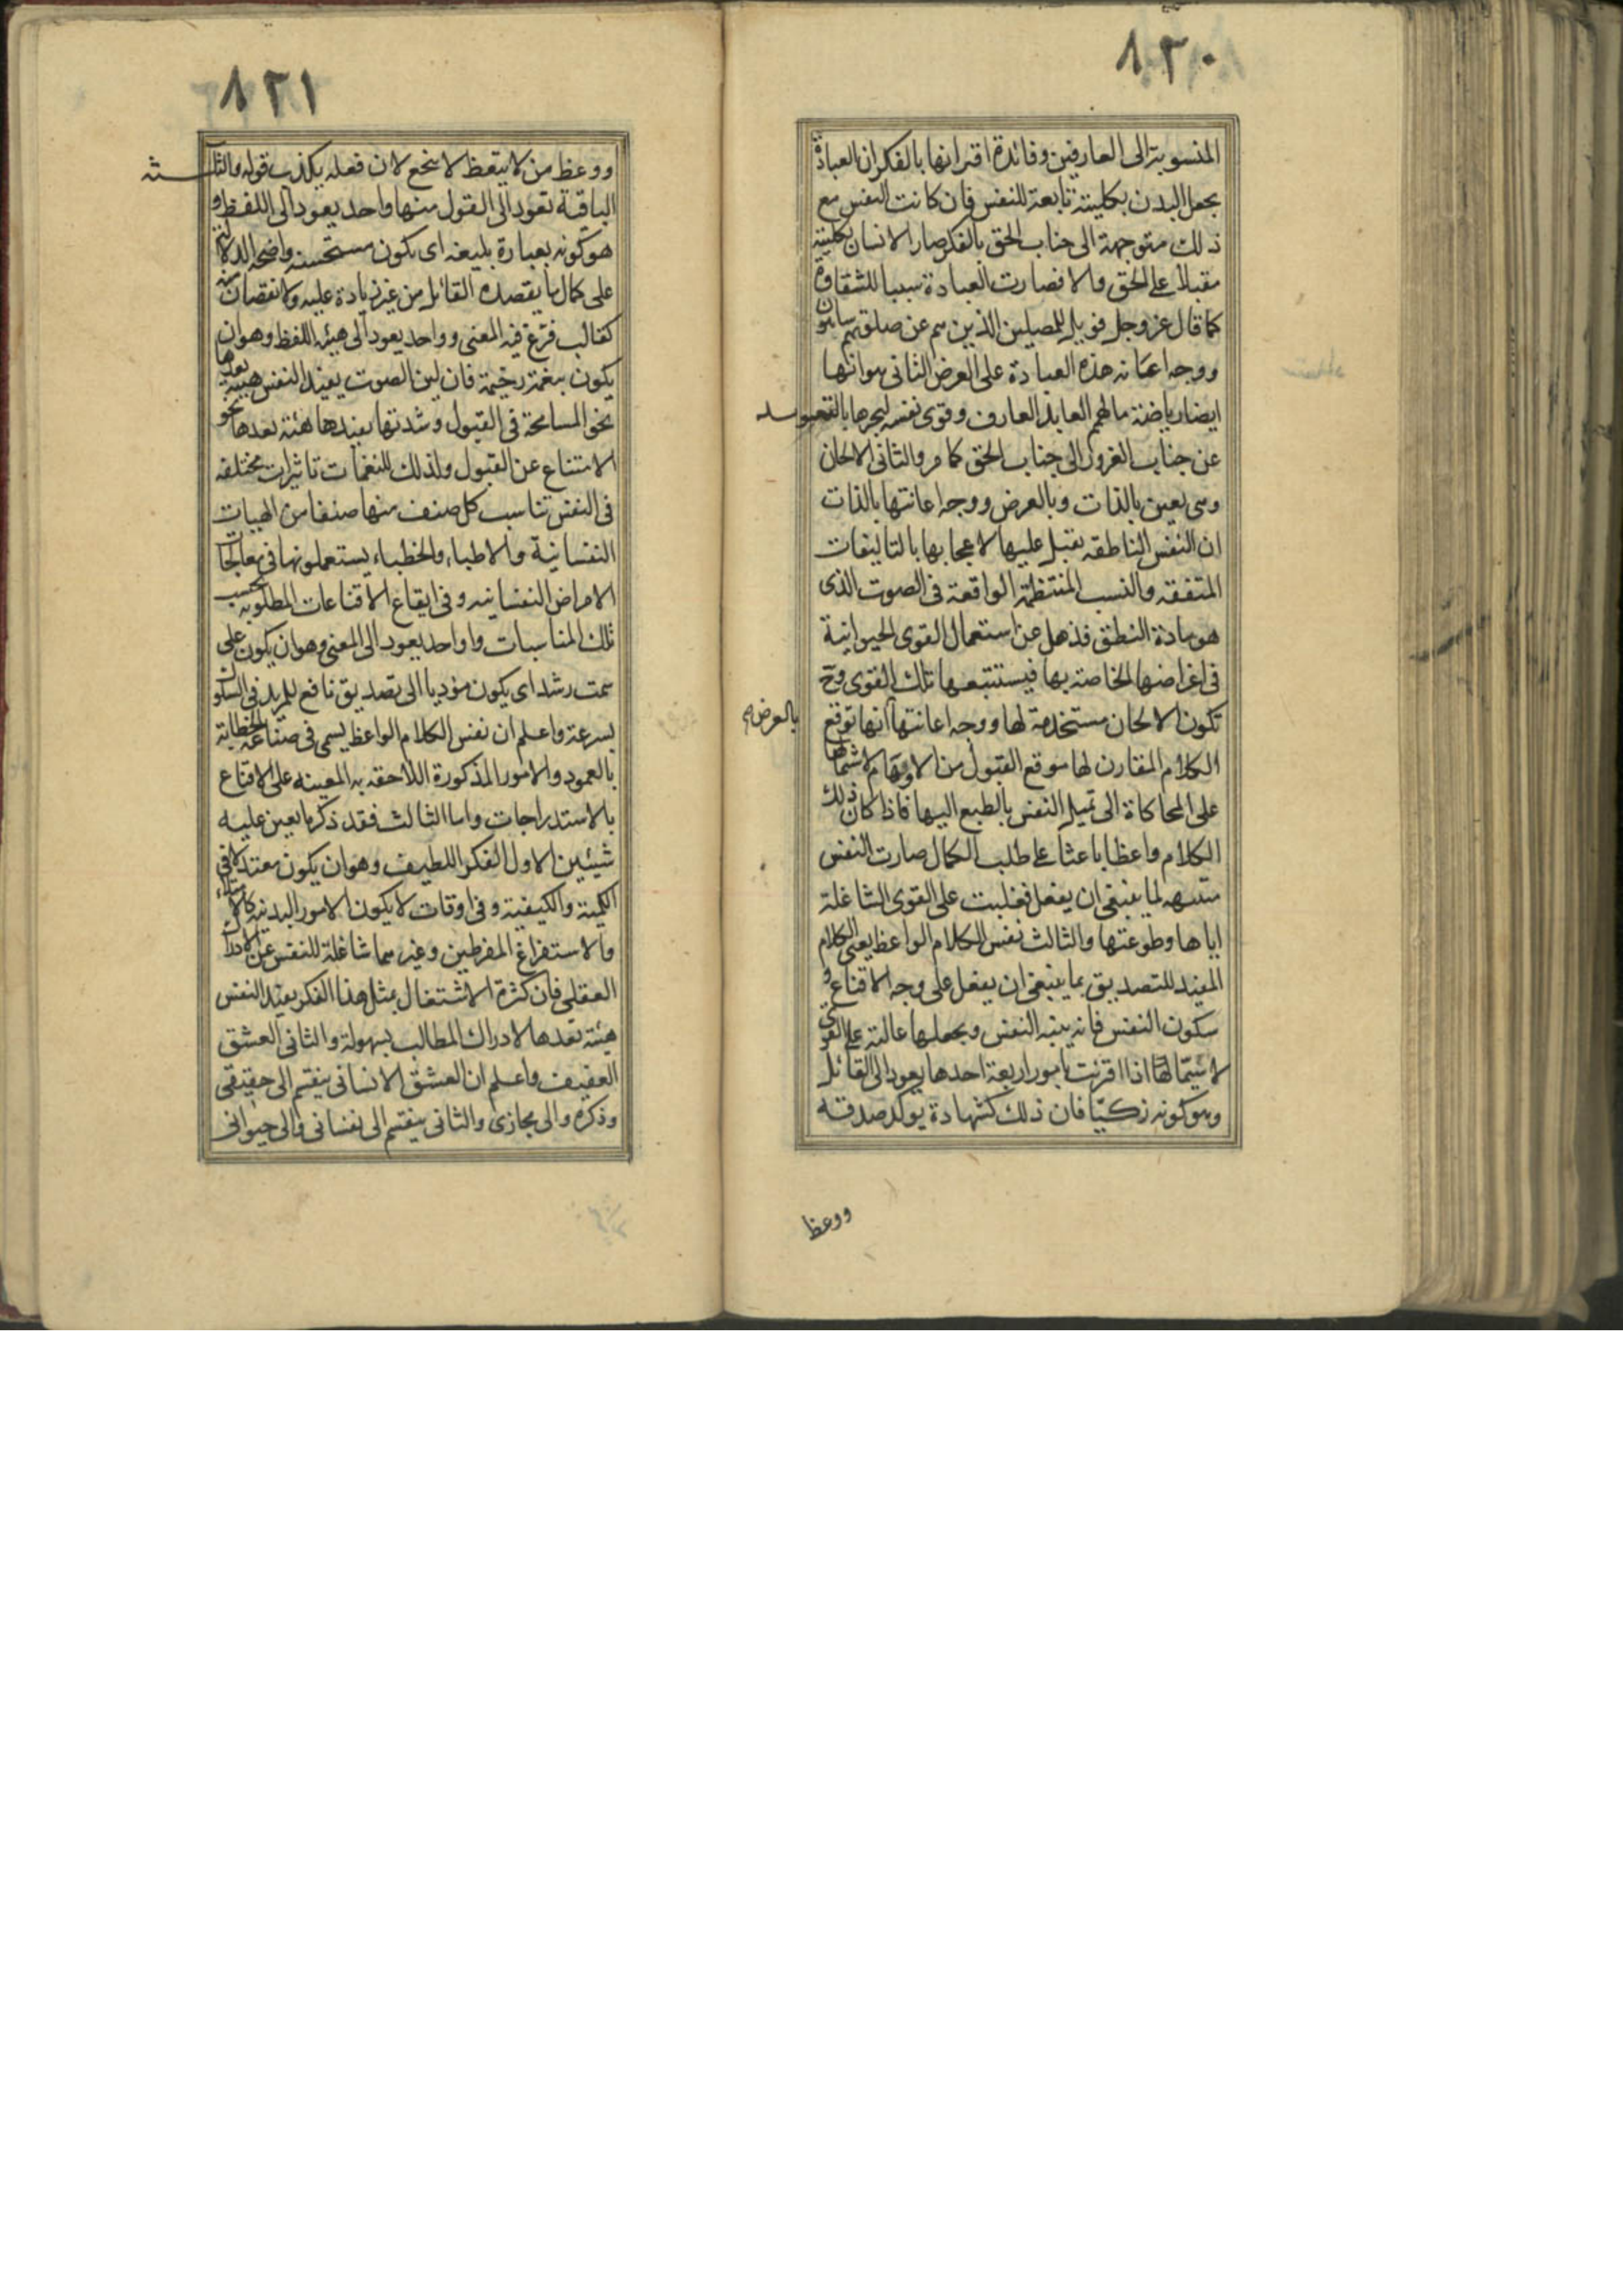 ٨٢٠
المنسوبة الى العارفين وفائدة اقترانها بالفكر ان العبادة
بجعل البدن بكليته تابعة للنفس فان كانت النفس مع
ذلك متوجهة الى جناب الحق بالفكر صار الانسان بكليته
مقبلا على الحق والا فصارت العبادة سببا للشقاوة
كما قال عز وجل فويل للمصلين الذين هم عن صلوتهم ساهون
ووجه اعانه هذه العبادة على الغرض الثانى هو انها
ايضا رياضة ما لهمم العابد العارف وقوى نفسه ليجرها بالتعويد
عن جناب الغرور الى جناب الحق كما مر والثانى الالحان
وهى يعين بالذات وبالعرض ووجه اعانتها بالذات
ان النفس الناطقه يقبل عليها لاعجابها بالتاليفات
المتفقه والنسب المنتظمة الواقعة فى الصوت الذى
هو مادة النطق فذهل عن استعمال القوى الحيوانية
فى اغراضها الخاصة بها فيستتبعها تلك القوى وح
تكون الالحان مستخدمة لها ووجه اعانتها انها توقع
بالعرض
الكلام المقارن لها موقع القبول من الاوهام لاشتمالها
على المحاكاة الى تميل النفس بالطبع اليها فاذا كان ذلك
الكلام واعظا باعثا على طلب الكمال صارت النفس
متنبهه لما ينبغى ان يفعل فغلبت على القوى الشاغلة
اياها وطوعتها والثالث نفس الكلام الواعظ يعنى الكلام
المفيد للتصديق بما ينبغى ان يفعل على وجه الاقناع و
سكون النفس فانه ينبه النفس ويجعلها غالبة على القوى
لا سيما لها اذا اقرنت بامور اربعة احدها يعود الى القائل
وهو كونه زكيا فان ذلك كشهادة يوكد صدقه
ووعظ
٨٢١
ووعظ من لا يتعظ لا ينجع لان فعله يكذب قوله والثلثه
الباقية تعود الى القول منها واحد يعود الى اللفظ و
هو كونه بعبارة بليغه اى يكون مستحسنه واضحه الدلالة
على كمال ما يقصده القائل من غير زيادة عليه ولا نقصان منه
كقالب فرغ فيه المعنى وواحد يعود الى هيئه اللفظ وهو ان
يكون بنغمة رخيمة فان لين الصوت يفيد النفس هيئه يعدها
نحو المسامحة فى القبول وشدتها يفيدها هئئة يعدها نحو
الامتناع عن القبول ولذلك للنغمات تاثيرات مختلفه
فى النفس تناسب كل صنف منها صنفا من الهيات
النفسانية والاطباء والخطباء يستعملونها فى معالجات
الامراض النفسانيه وفى ايقاع الاقناعات المطلوبه بحسب
تلك المناسبات وواحد يعود الى المعنى وهو ان يكون على
سمت رشد اى يكون مؤديا الى تصديق نافع للمريد فى السلوك
بسرعة واعلم ان نفس الكلام الواعظ يسمى فى صناعة الخطابة
بالعمود والامور المذكورة اللاحقه به المعينه على الاقناع
بالاستدراجات واما الثالث فقد ذكر ما يعين عليه
شيئين الاول الفكر اللطيف وهو ان يكون معتدلا فى
الكمية والكيفية وفى اوقات لا يكون الامور البدنيه كالامتلاء
والاستفراغ المفرطين وغيرهما شاغلة للنفس عن الادراك
العقلى فان كثرة الاشتغال بمثل هذا الفكر يفيد النفس
هيئة تعدها لادراك المطالب بسهولة والثانى العشق
العفيف واعلم ان العشق الانسانى ينقسم الى حقيقى
وذكره والى مجازى والثانى ينقسم الى نفسانى والى حيوانى